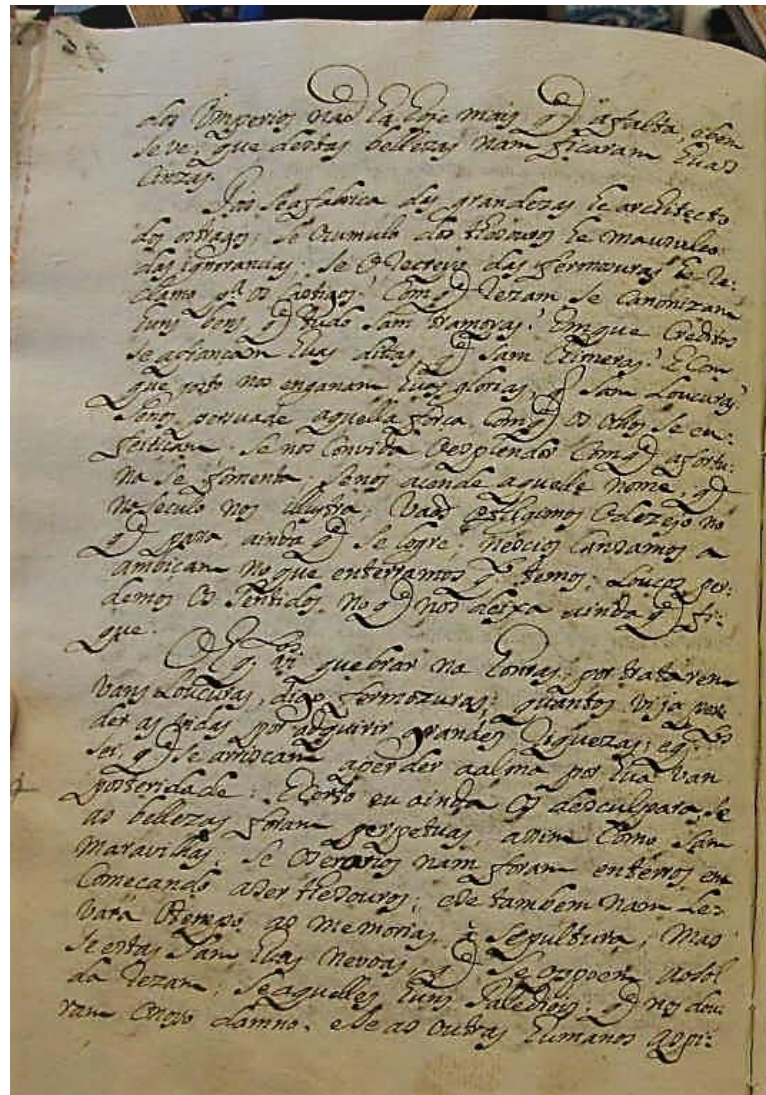 dos Imperios nao ha hoje mais q̃ a falta, e bem
se ve, que destas bellezas nam ficaram huas
Cinzas.
Pois se a fabrica das grandezas he architecto
dos estragos; se O cumulo dos thesouros he mausuleo
das ignorancias; se O Recreyo das fermosuras he Re:
clamo pª Os Castigos! Com q̃ Rezam se Canonizam
huns bens, q̃ tudo sam tramoyas! Em que Creditos
se afiançam huas ditas, q̃ sam Chimeras! E Com
que gosto nos enganam huas glorias, q̃ sam Loucuras!
Se nos persuade aquella força, Com q̃ Os Olhos se en:
feitiçam. Se nos Convida O esplendor Com q̃ a fortu:
na se fomenta, Se nos acende aquele nome, q̃
no seculo nos illustra; Vaos O desejo no
q̃ passa ainda q̃ se logre; Necios Cansamos a
ambicam no que enterramos q̃ temos; Loucos per:
demos Os Sentidos, No q̃ nos deixa ainda q̃ fi:
que.
vi quebrar na honra, por tratarem
Loucuras, digo fermozuras; quantos vi ja per
der as vidas por adquirir grandes Riquezas; e q.
ser, q̃ se arriscam a perder a alma por hua van
posteridade: E certo eu ainda Os desculpara, Se
as bellezas foram perpetuas, assim Como sam
maravilhas; Se Os erarios nam foram enterros em
Comecando a ser thesouros; e se tambem nam Le:
vara O tempo as memorias, à sepultura; Mas
se estas sam huas nevoas, q̃ se oppoem ao sol
da Rezam; Se aquelles huns q̃ nos dou:
ram O nosso damno. e Se as outras humanos aspi: